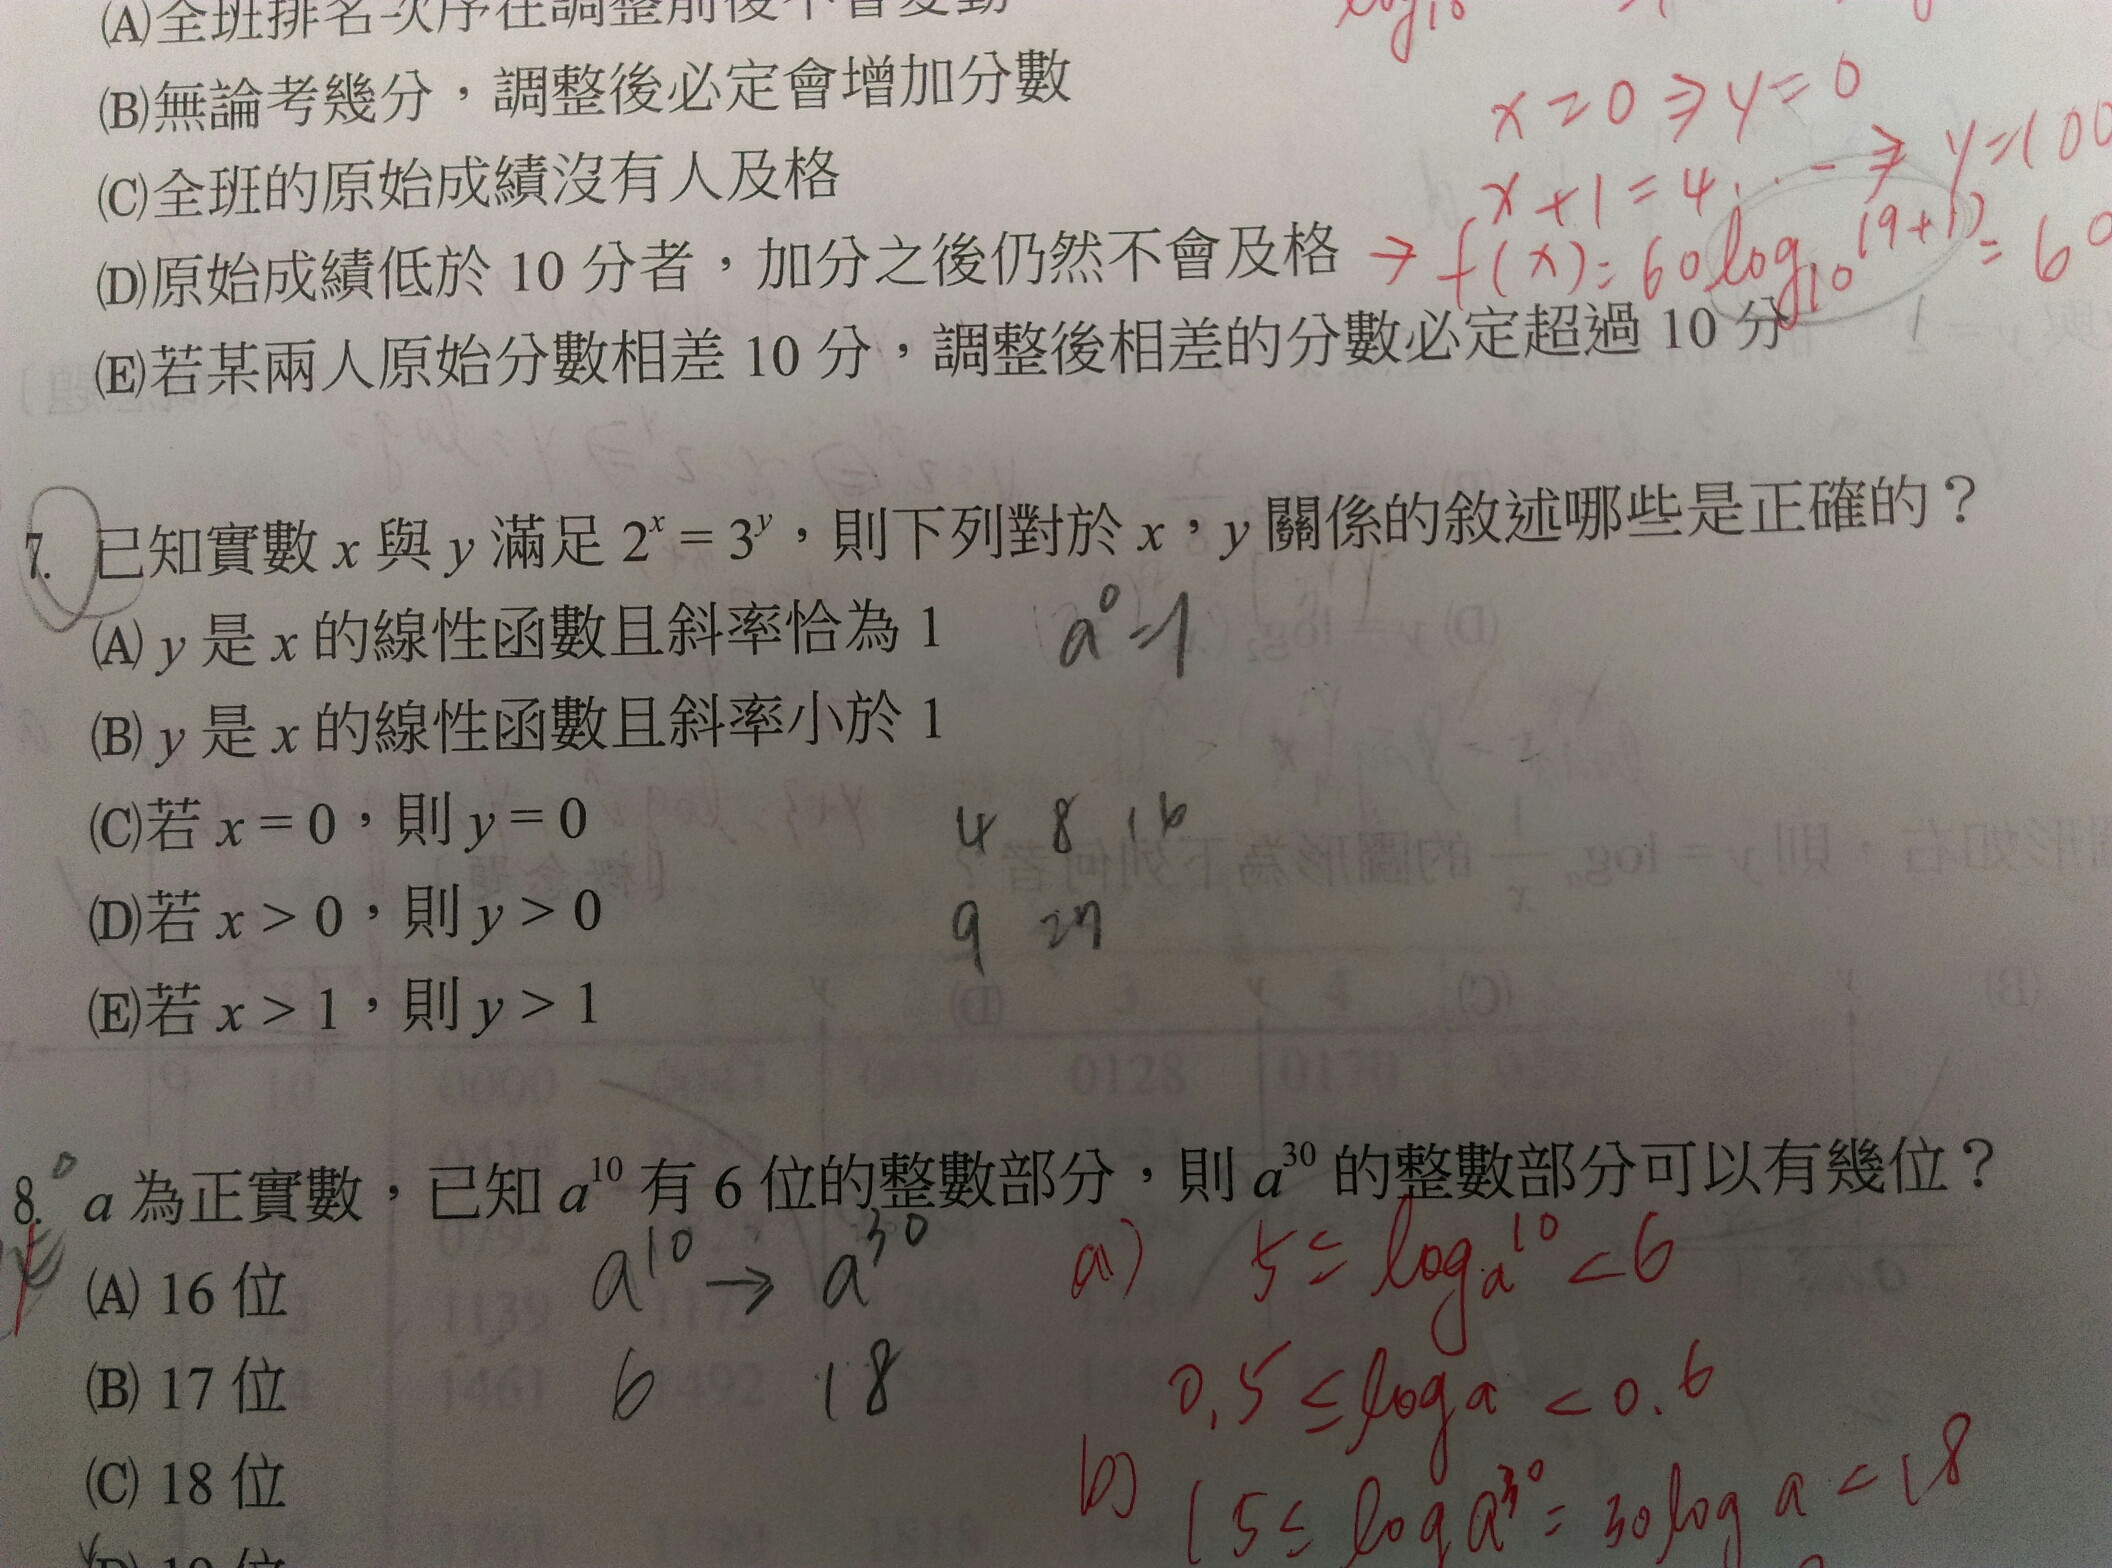 (A)全班排名次序在調整前後不會變動
(B)無論考幾分，調整後必定會增加分數
x=0⇒y=0
(C)全班的原始成績沒有人及格
x+1=4...⇒y=100
(D)原始成績低於 10 分者，加分之後仍然不會及格 → f(x)=60log₁₀(9+1)=60
(E)若某兩人原始分數相差 10 分，調整後相差的分數必定超過 10 分
7. 已知實數 x 與 y 滿足 2ˣ = 3ʸ，則下列對於 x，y 關係的敘述哪些是正確的？
(A) y 是 x 的線性函數且斜率恰為 1
a⁰=1
(B) y 是 x 的線性函數且斜率小於 1
(C)若 x = 0，則 y = 0
4 8 16
(D)若 x > 0，則 y > 0
9 27
(E)若 x > 1，則 y > 1
8. a 為正實數，已知 a¹⁰ 有 6 位的整數部分，則 a³⁰ 的整數部分可以有幾位？
(A) 16 位
a¹⁰ → a³⁰
a) 5≤log a¹⁰<6
(B) 17 位
6 18
0.5≤log a<0.6
(C) 18 位
b) 15≤log a³⁰=30log a<18
(D) 19 位